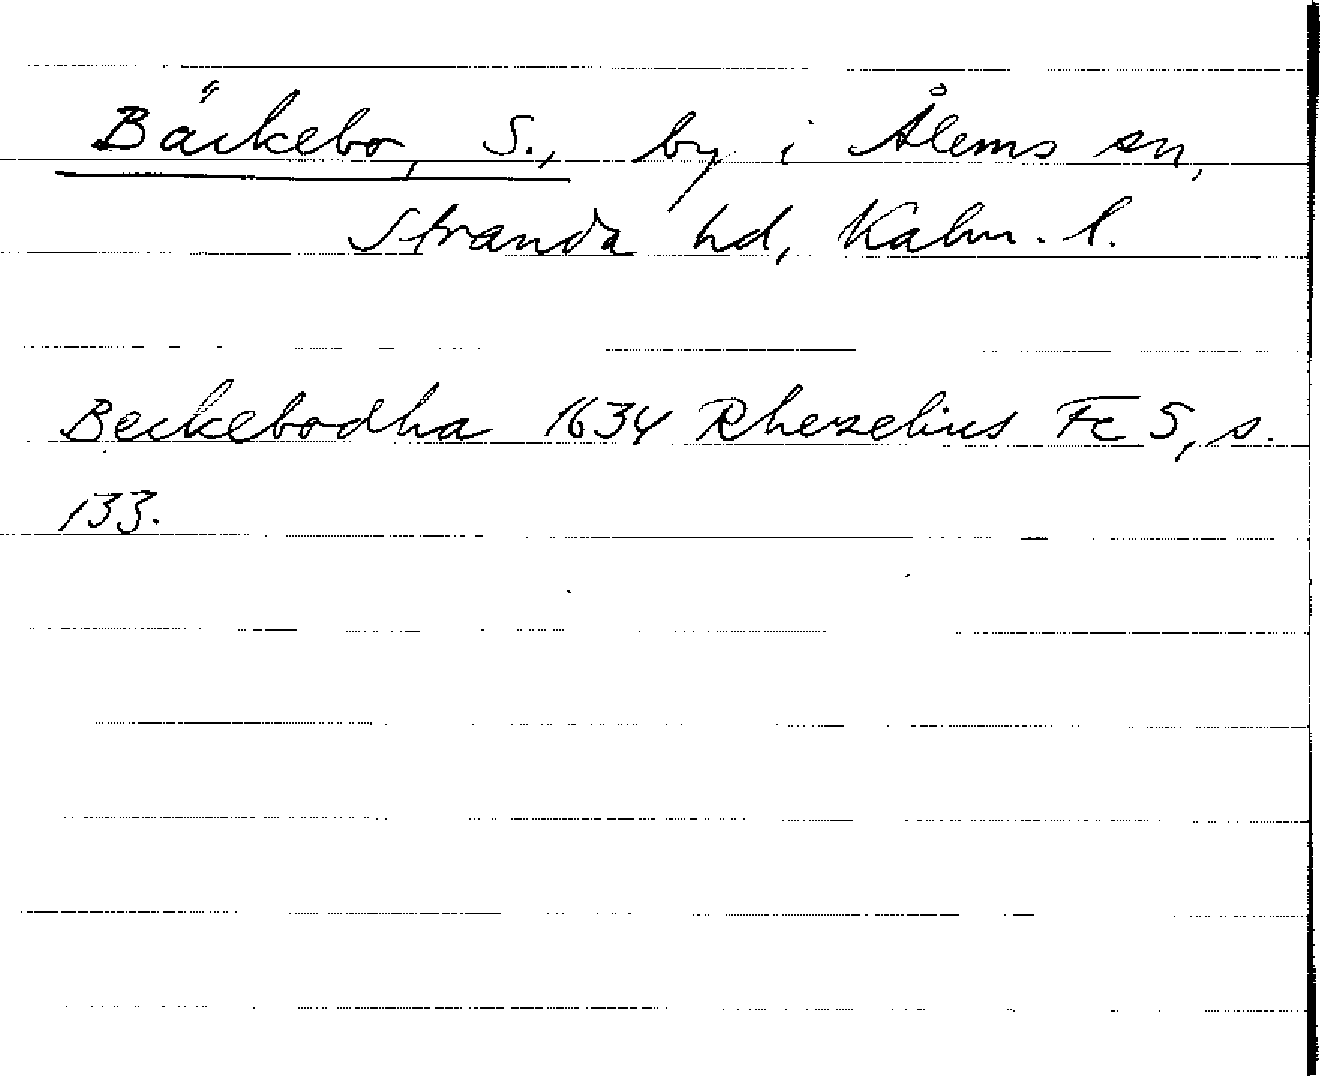 Bäckebo, S., by i Ålems sn,
Stranda hd, Kalm. l.
Beckebodha 1634 Rhezelius Fc 5, s.
133.